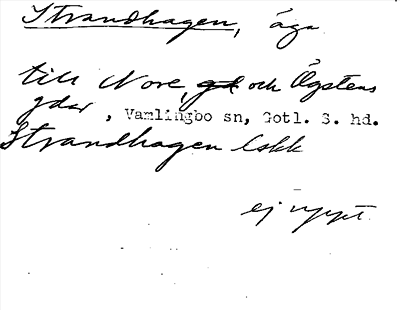 Strandhagen, äga
till Nore, gd och Ägstens
gdar, Vamlingbo sn, Gotl. S. hd.
Strandhagen Eskk
ej uppt.